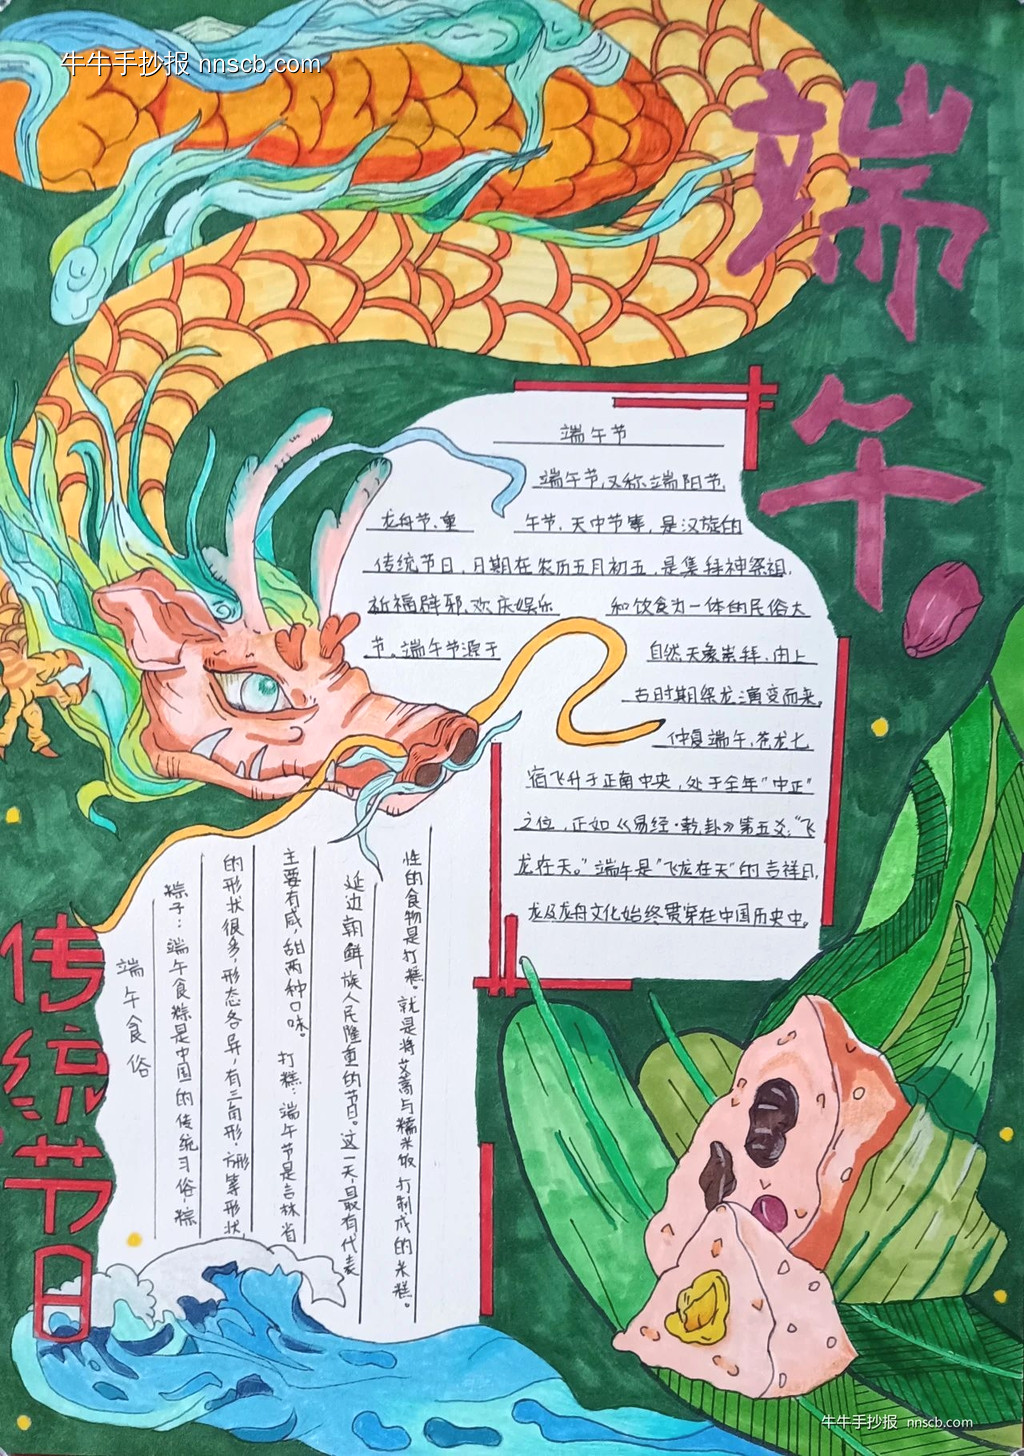 牛牛手抄报 nnscb.com
端午
端午节
端午节,又称端阳节,
龙舟节、重 午节、天中节等,是汉族的
传统节日,日期在农历五月初五,是集拜神祭祖,
祈福辟邪、欢庆娱乐 和饮食为一体的民俗大
节。端午节源于 自然天象崇拜,由上
古时期祭龙演变而来。
仲夏端午,苍龙七
宿飞升于正南中央,处于全年“中正”
之位,正如《易经·乾卦》第五爻:“飞
龙在天。”端午是“飞龙在天”的吉祥日,
龙及龙舟文化始终贯穿在中国历史中。
传统节日
端午食俗
粽子:端午食粽是中国的传统习俗,粽
的形状很多,形态各异,有三角形、方形等形状
主要有咸甜两种口味。 打糕:端午节是吉林省
延边朝鲜族人民隆重的节日。这一天,最有代表
性的食物是打糕。就是将艾蒿与糯米饭打制成的米糕。
牛牛手抄报 nnscb.com